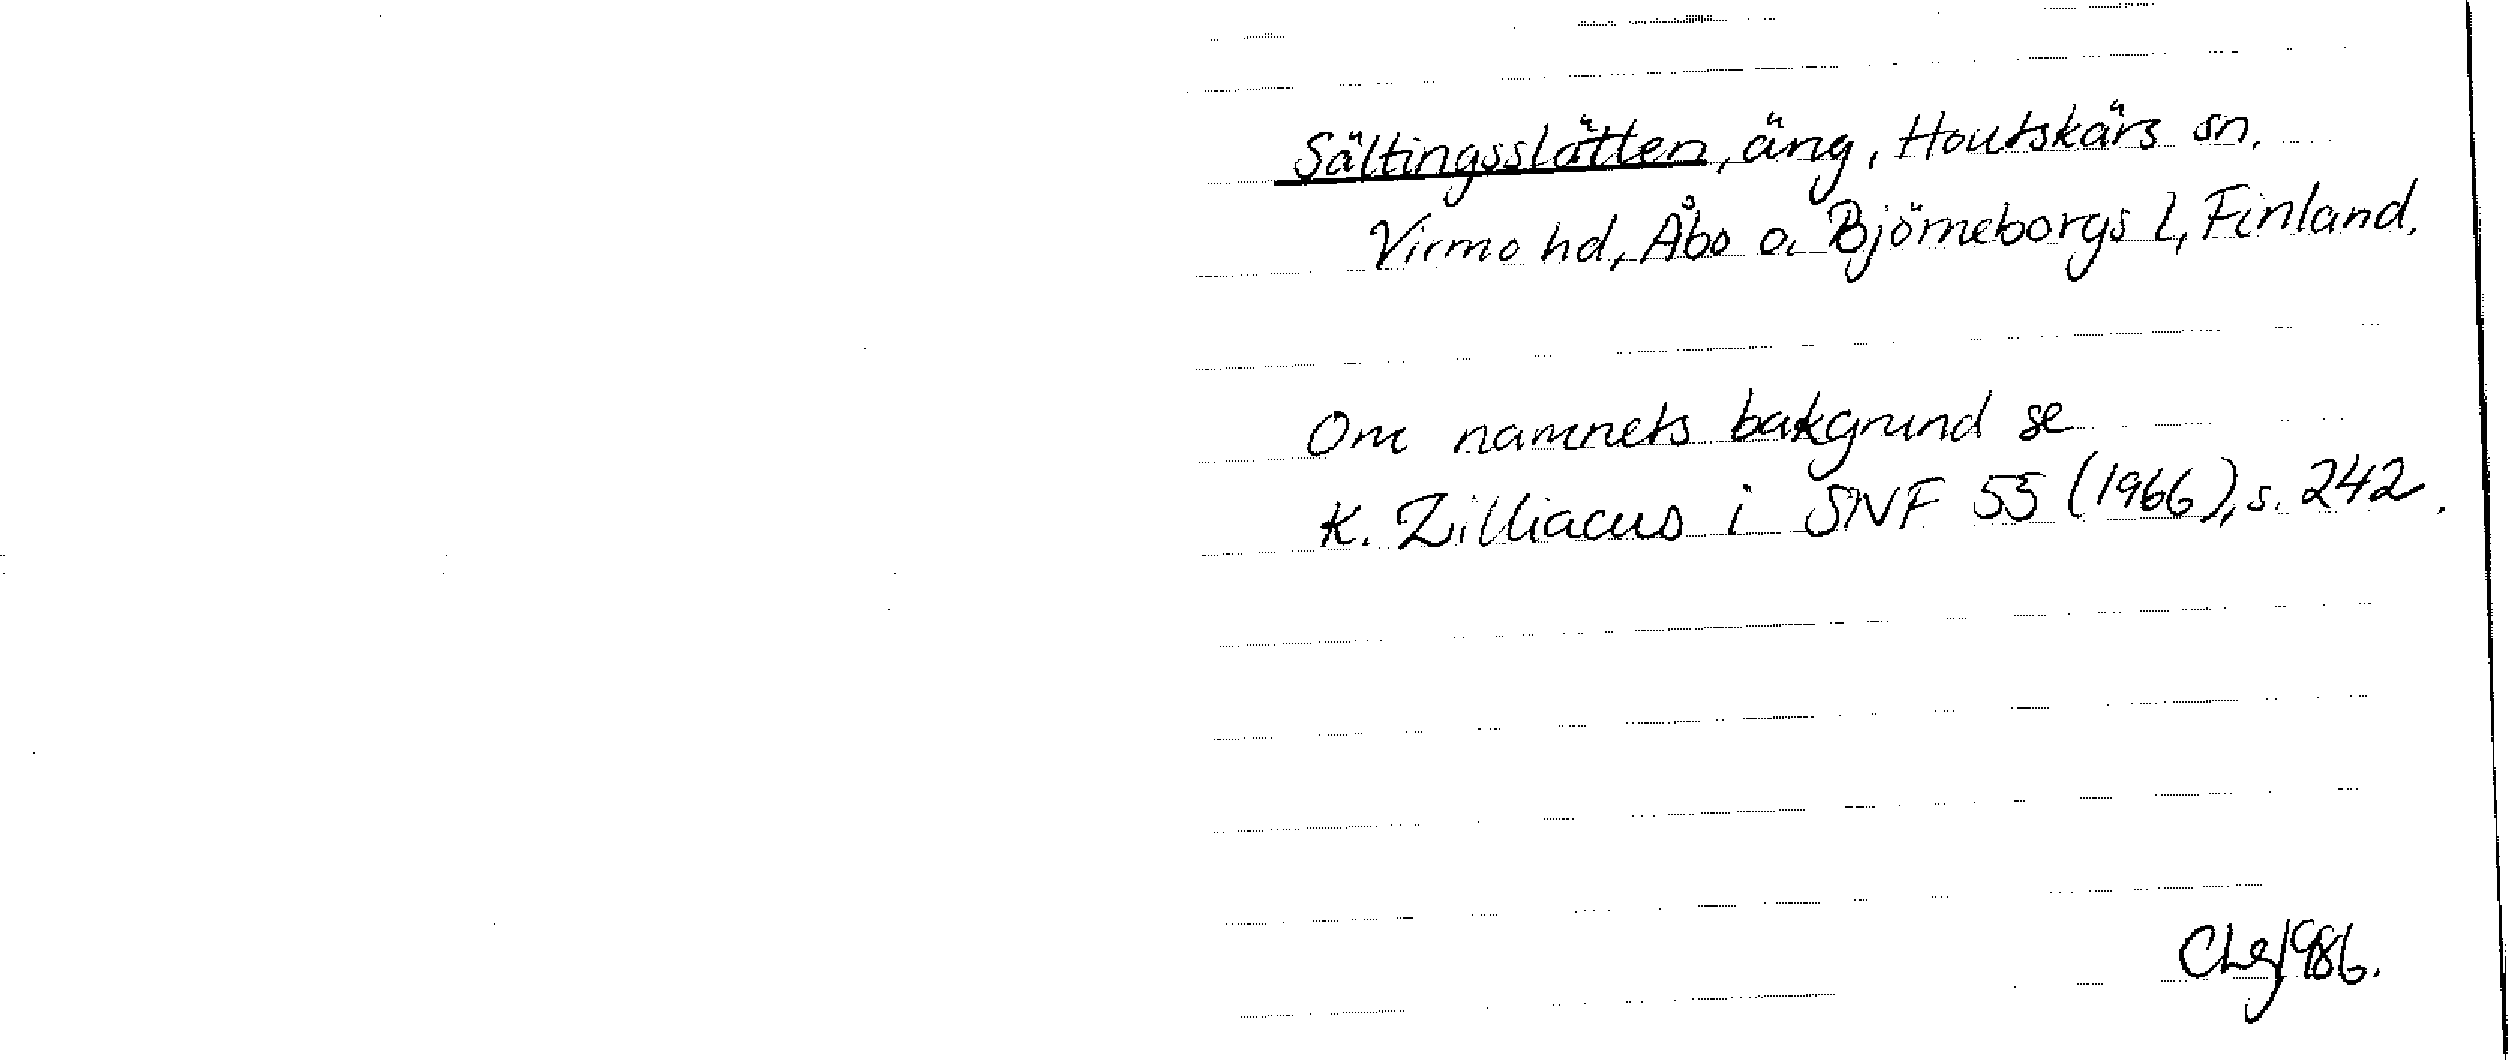 Sältingsslätten, äng, Houtskärs sn.
Virmo hd, Åbo o. Björneborgs l, Finland.
Om namnets bakgrund se
K. Zilliacus i SNF 55 (1966), s. 242.
1986.